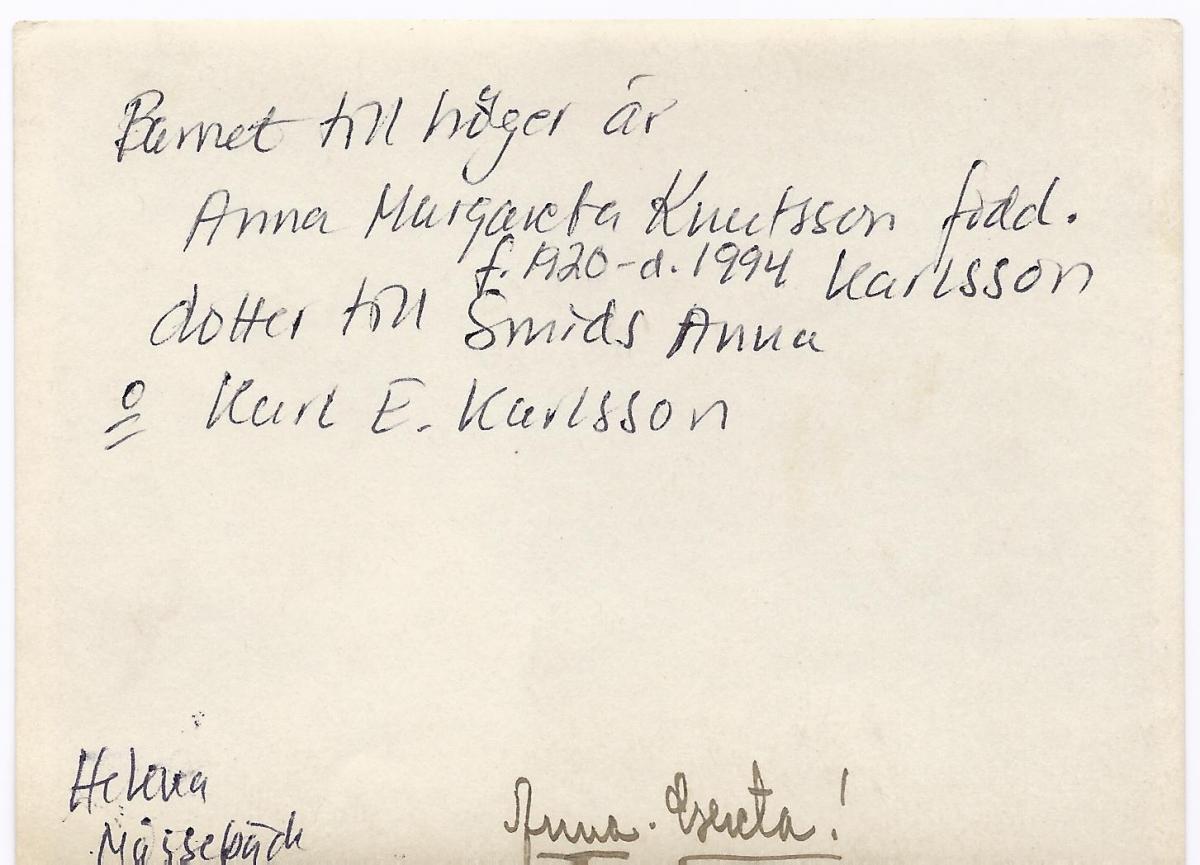 Barnet till höger är
Anna Margareta Knutsson född.
f. 1920-d. 1994 Karlsson
dotter till Smids Anna
o Karl E. Karlsson
Helena
Anna.